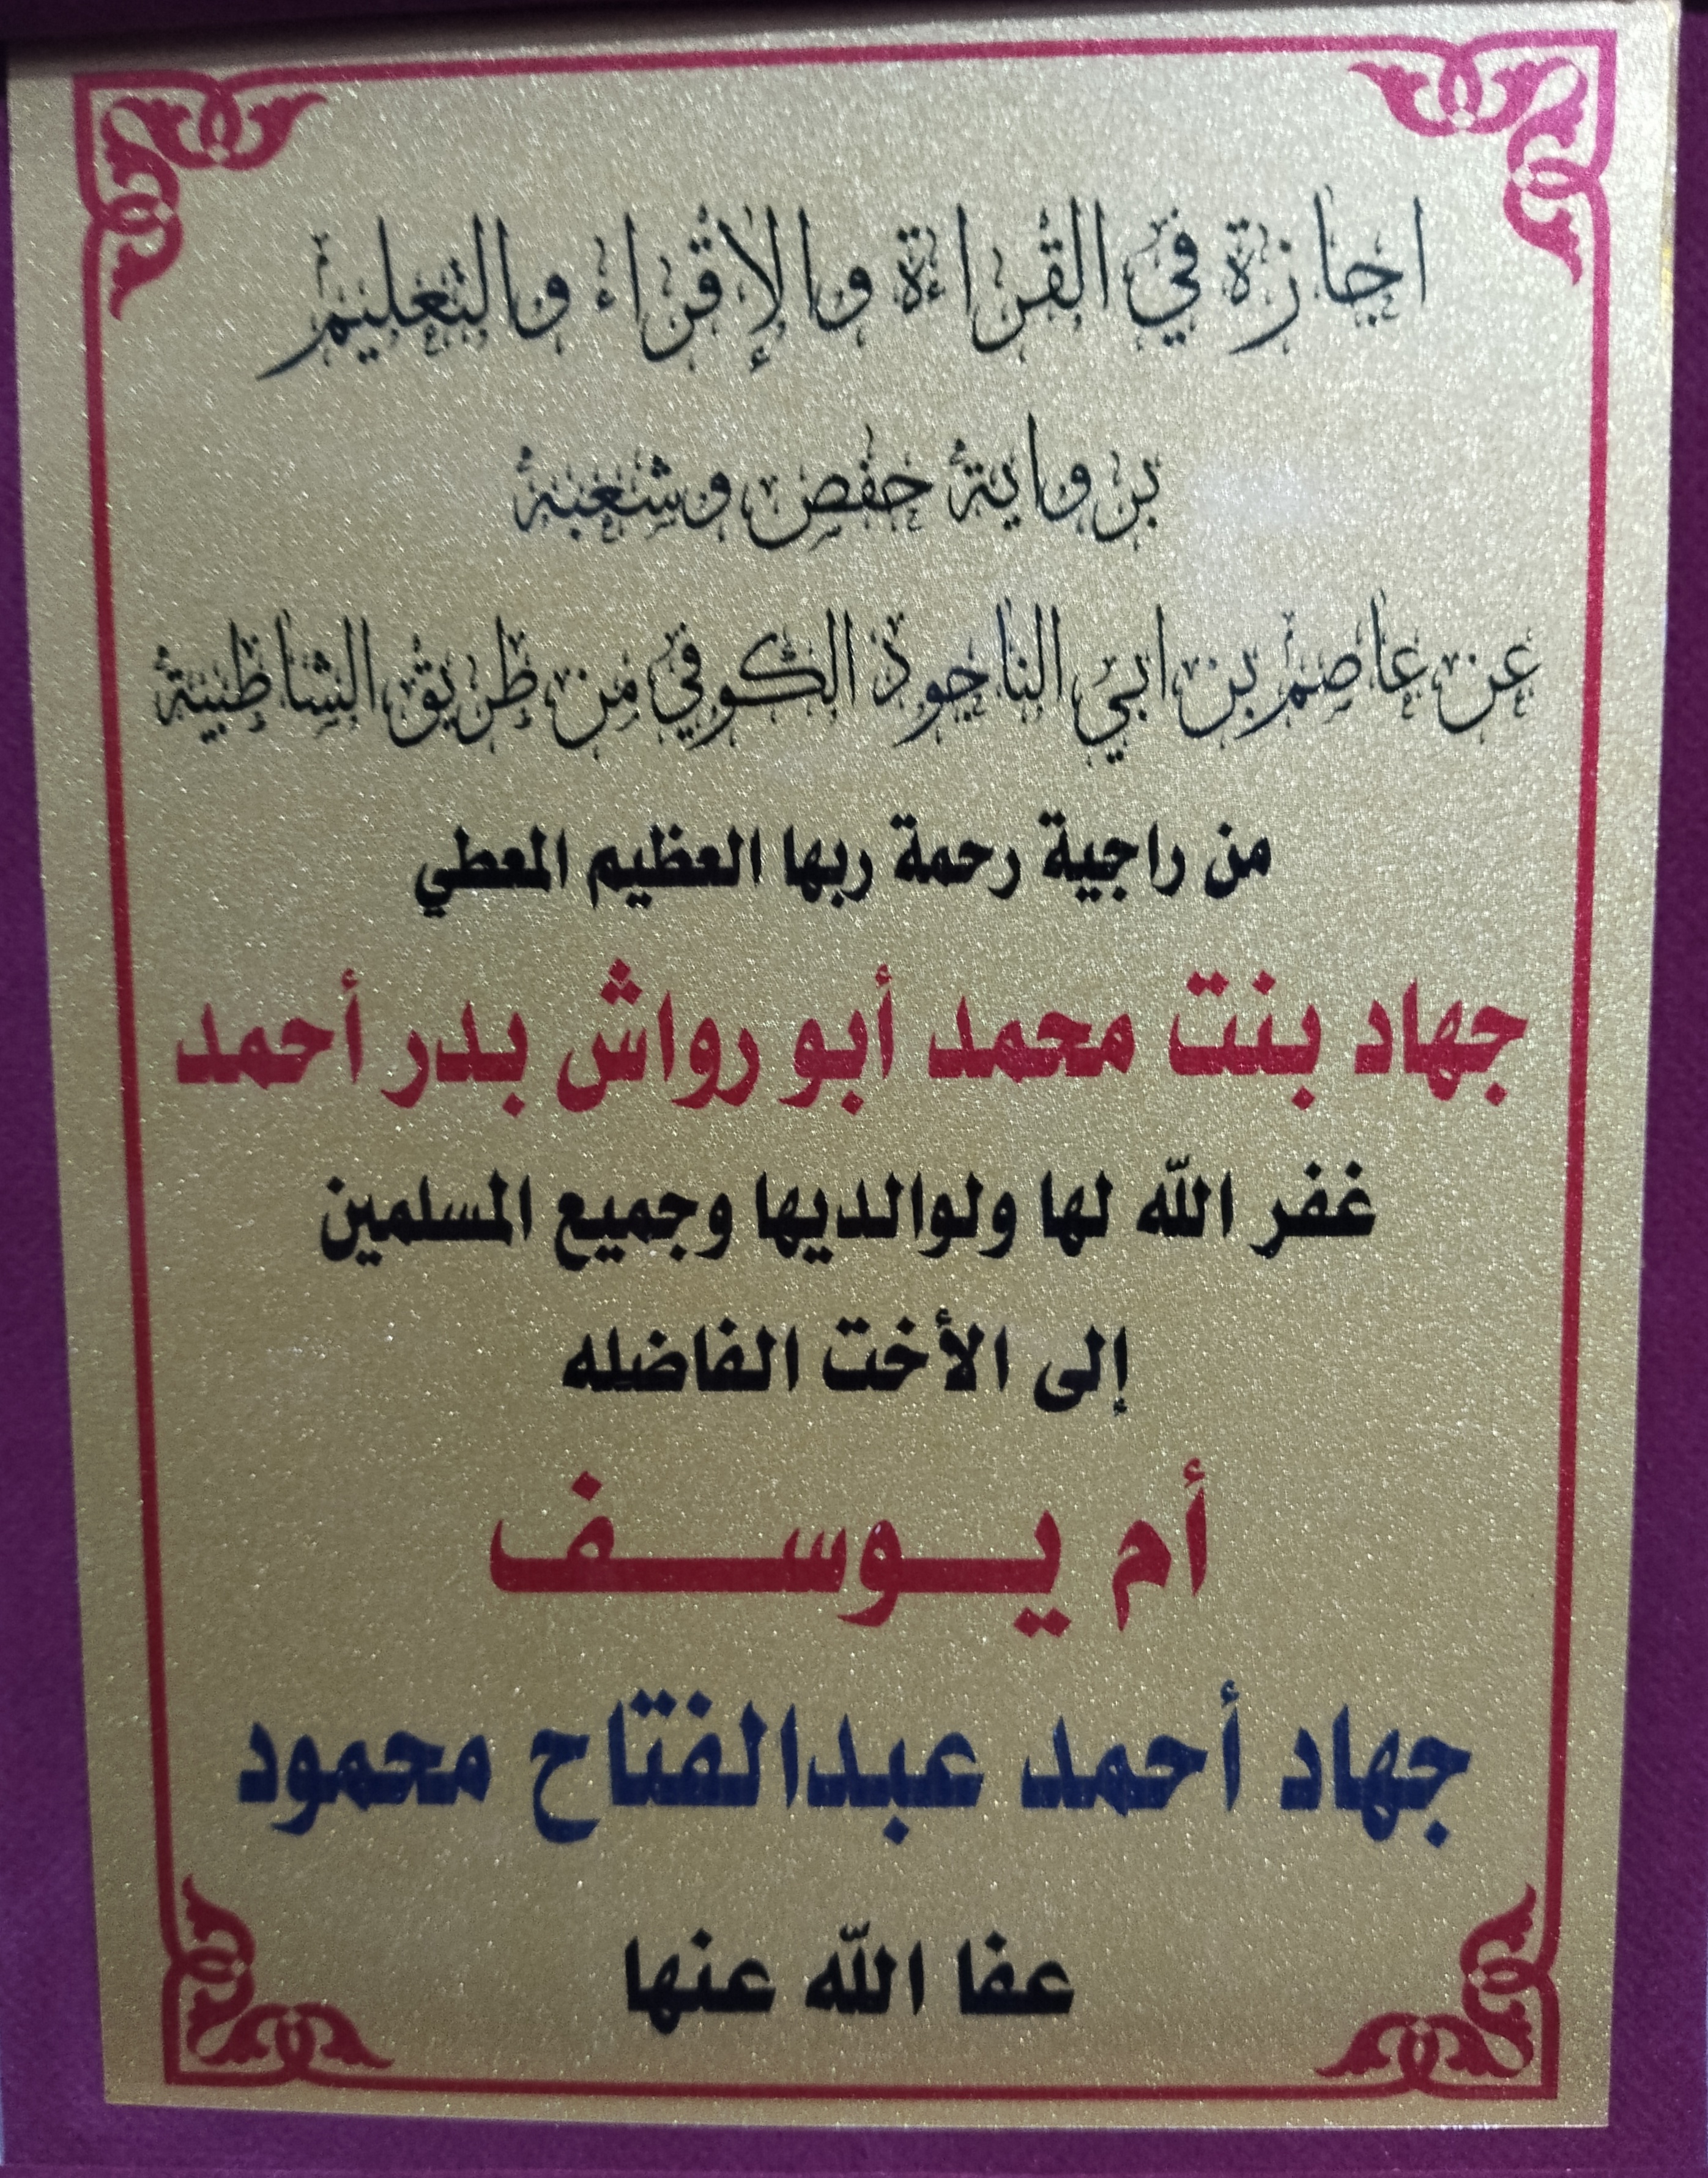 اجازة في القراءة والإقراء والتعليم
برواية حفص وشعبة
عن عاصم بن ابي الناجود الكوفي من طريق الشاطبية
من راجية رحمة ربها العظيم المعطي
جهاد بنت محمد أبو رواش بدر أحمد
غفر الله لها ولوالديها وجميع المسلمين
إلى الأخت الفاضله
أم يوسف
جهاد أحمد عبدالفتاح محمود
عفا الله عنها